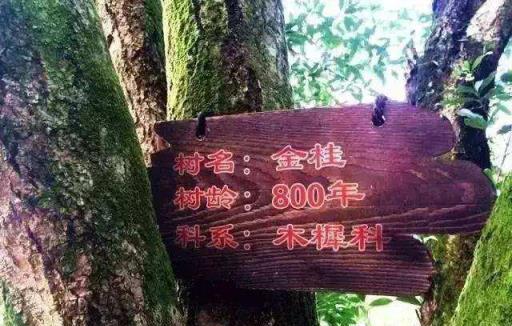 树名：金桂
树龄：800年
科系：木樨科